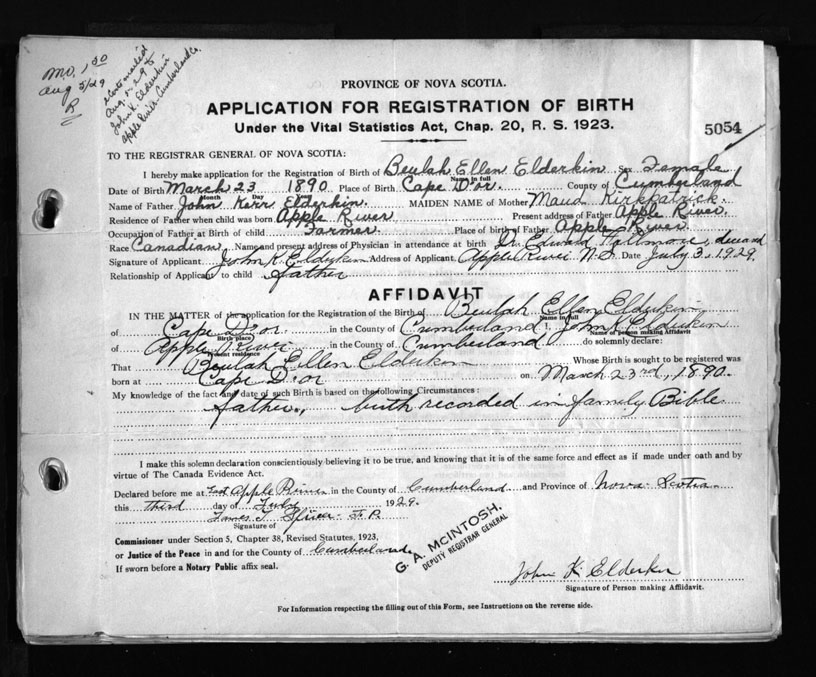 Mo. 1.50
Aug 5/29
R
Cert mailed
Aug. 5, 29 to
John K. Elderkin
Apple River Cumberland Co.
PROVINCE OF NOVA SCOTIA.
APPLICATION FOR REGISTRATION OF BIRTH
Under the Vital Statistics Act, Chap. 20, R. S. 1923.
5054
TO THE REGISTRAR GENERAL OF NOVA SCOTIA:
I hereby make application for the Registration of Birth of Beulah Ellen Elderkin Sex Female
Name in full
Date of Birth March 23 1890 Place of Birth Cape D'or. County of Cumberland
Month Day
Name of Father John Kerr Elderkin. MAIDEN NAME of Mother Maud Kirkpatrick.
Residence of Father when child was born Apple River Present address of Father Apple River.
Occupation of Father at Birth of child Farmer. Place of birth of Father Apple River
Race Canadian Name and present address of Physician in attendance at birth Dr. Edward deceased
Signature of Applicant John K. Elderkin Address of Applicant Apple River N.S. Date July 3, 1929.
Relationship of Applicant to child father
AFFIDAVIT
IN THE MATTER of the application for the Registration of the Birth of Beulah Ellen Elderkin
Name in full
of Cape D'or in the County of Cumberland I, John K Elderkin
Birth place Name of person making Affidavit
of Apple River in the County of Cumberland do solemnly declare:
Present residence
That Beulah Ellen Elderkin Whose Birth is sought to be registered was
born at Cape D'or on March 23rd, 1890.
My knowledge of the fact and date of such Birth is based on the following Circumstances:
father, birth recorded in family Bible
I make this solemn declaration conscientiously believing it to be true, and knowing that it is of the same force and effect as if made under oath and by
virtue of The Canada Evidence Act.
Declared before me at East Apple River in the County of Cumberland and Province of Nova Scotia
this third day of July 1929.
James T. Spicer J.P.
Signature of
Commissioner under Section 5, Chapter 38, Revised Statutes, 1923,
or Justice of the Peace in and for the County of Cumberland
If sworn before a Notary Public affix seal.
G. A. McINTOSH,
DEPUTY REGISTRAR GENERAL
John K Elderkin
Signature of Person making Affidavit.
For Information respecting the filling out of this Form, see Instructions on the reverse side.